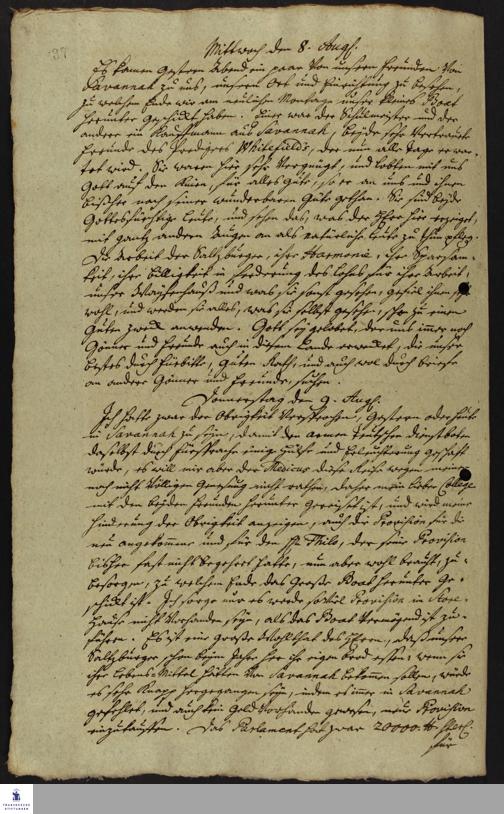 137
Mittwoch den 8. Augs.
Es kamen gestern Abend ein paar von unsern Freunden von
Savannah zu uns, unsern Ort und Einrichtung zu besehen,
zu welchem Ende wir am neulichen Montage unser kleines Boot
herunter geschickt haben. Einer war der Schulmeister und der
andere ein Kauffmann aus Savannah, beyde sehr vertraute
Freunde des Predigers Whitefields, der nun alle Tage erwar-
tet wird. Sie waren hier sehr vergnügt, und lobten mit uns
Gott auf den Knien, für alles Gute, so er an uns und ihnen
bißher nach seiner wunderbaren Güte gethan. Sie sind beyde
Gottesfürchtige Leute, und sehen das, was der Herr hier erzeiget,
mit gantz andern Augen an als natürliche Leute zu thun pflegen.
Die Arbeit der Saltzburger, ihre Harmonie, ihre Sparsam-
keit, ihre Billigkeit in Forderung des Lohns für ihre Arbeit,
unser Waysenhauß und was sie sonst gesehen, gefiel ihnen sehr
wohl, und werden sie alles, was sie selbst gesehen, schon zu einem
guten Zweck anwenden. Gott sey gelobet, der uns immer noch
Gönner und Freunde auch in diesem Lande erwecket, die unser
bestes durch Fürbitte, guten Rath, und auch wol durch Briefe
an andere Gönner und Freunde, suchen.
Donnerstag den 9. Augs.
Ich hatte zwar der Obrigkeit versprochen, gestern oder heute
in Savannah zu seyn, damit den armen teutschen Dienstboten
daselbst durch Fürsprache einige Hülfe und Erleichterung geschafft
würde, es will mir aber der Medicus diese Reise wegen meiner
noch nicht völligen Genesung nicht rathen, daher mein lieber College
mit den beyden Freunden herunter gereiset ist, und wird meine
Hinderung der Obrigkeit anzeigen, auch die Provision für die
neu angekommene und für den Hr. Thilo, der seine Provision
bißher fast nicht begehret hatte, nun aber wohl braucht, zu-
besorgen, zu welchem Ende das große Boot herunter ge-
schickt ist. Ich sorge nur es werde so viel Provision in Store-
Hause nicht vorhanden seyn, als das Boot vermögend ist zu-
führen. Es ist eine große Wohlthat des Herrn, daß unsere
Saltzburger schon beym Jahr her ihr eigen Brod essen; wenn sie
ihre Lebens-Mittel hätten von Savannah bekommen sollen, würde
es sehr knapp hergegangen seyn, indem es immer in Savannah
gefehlet, und auch kein Geld vorhanden gewesen, neue Provision
einzukauffen. Das Parlament hat zwar 20000. ℔ Sterl.
für
FRANCKESCHE
STIFTUNGEN